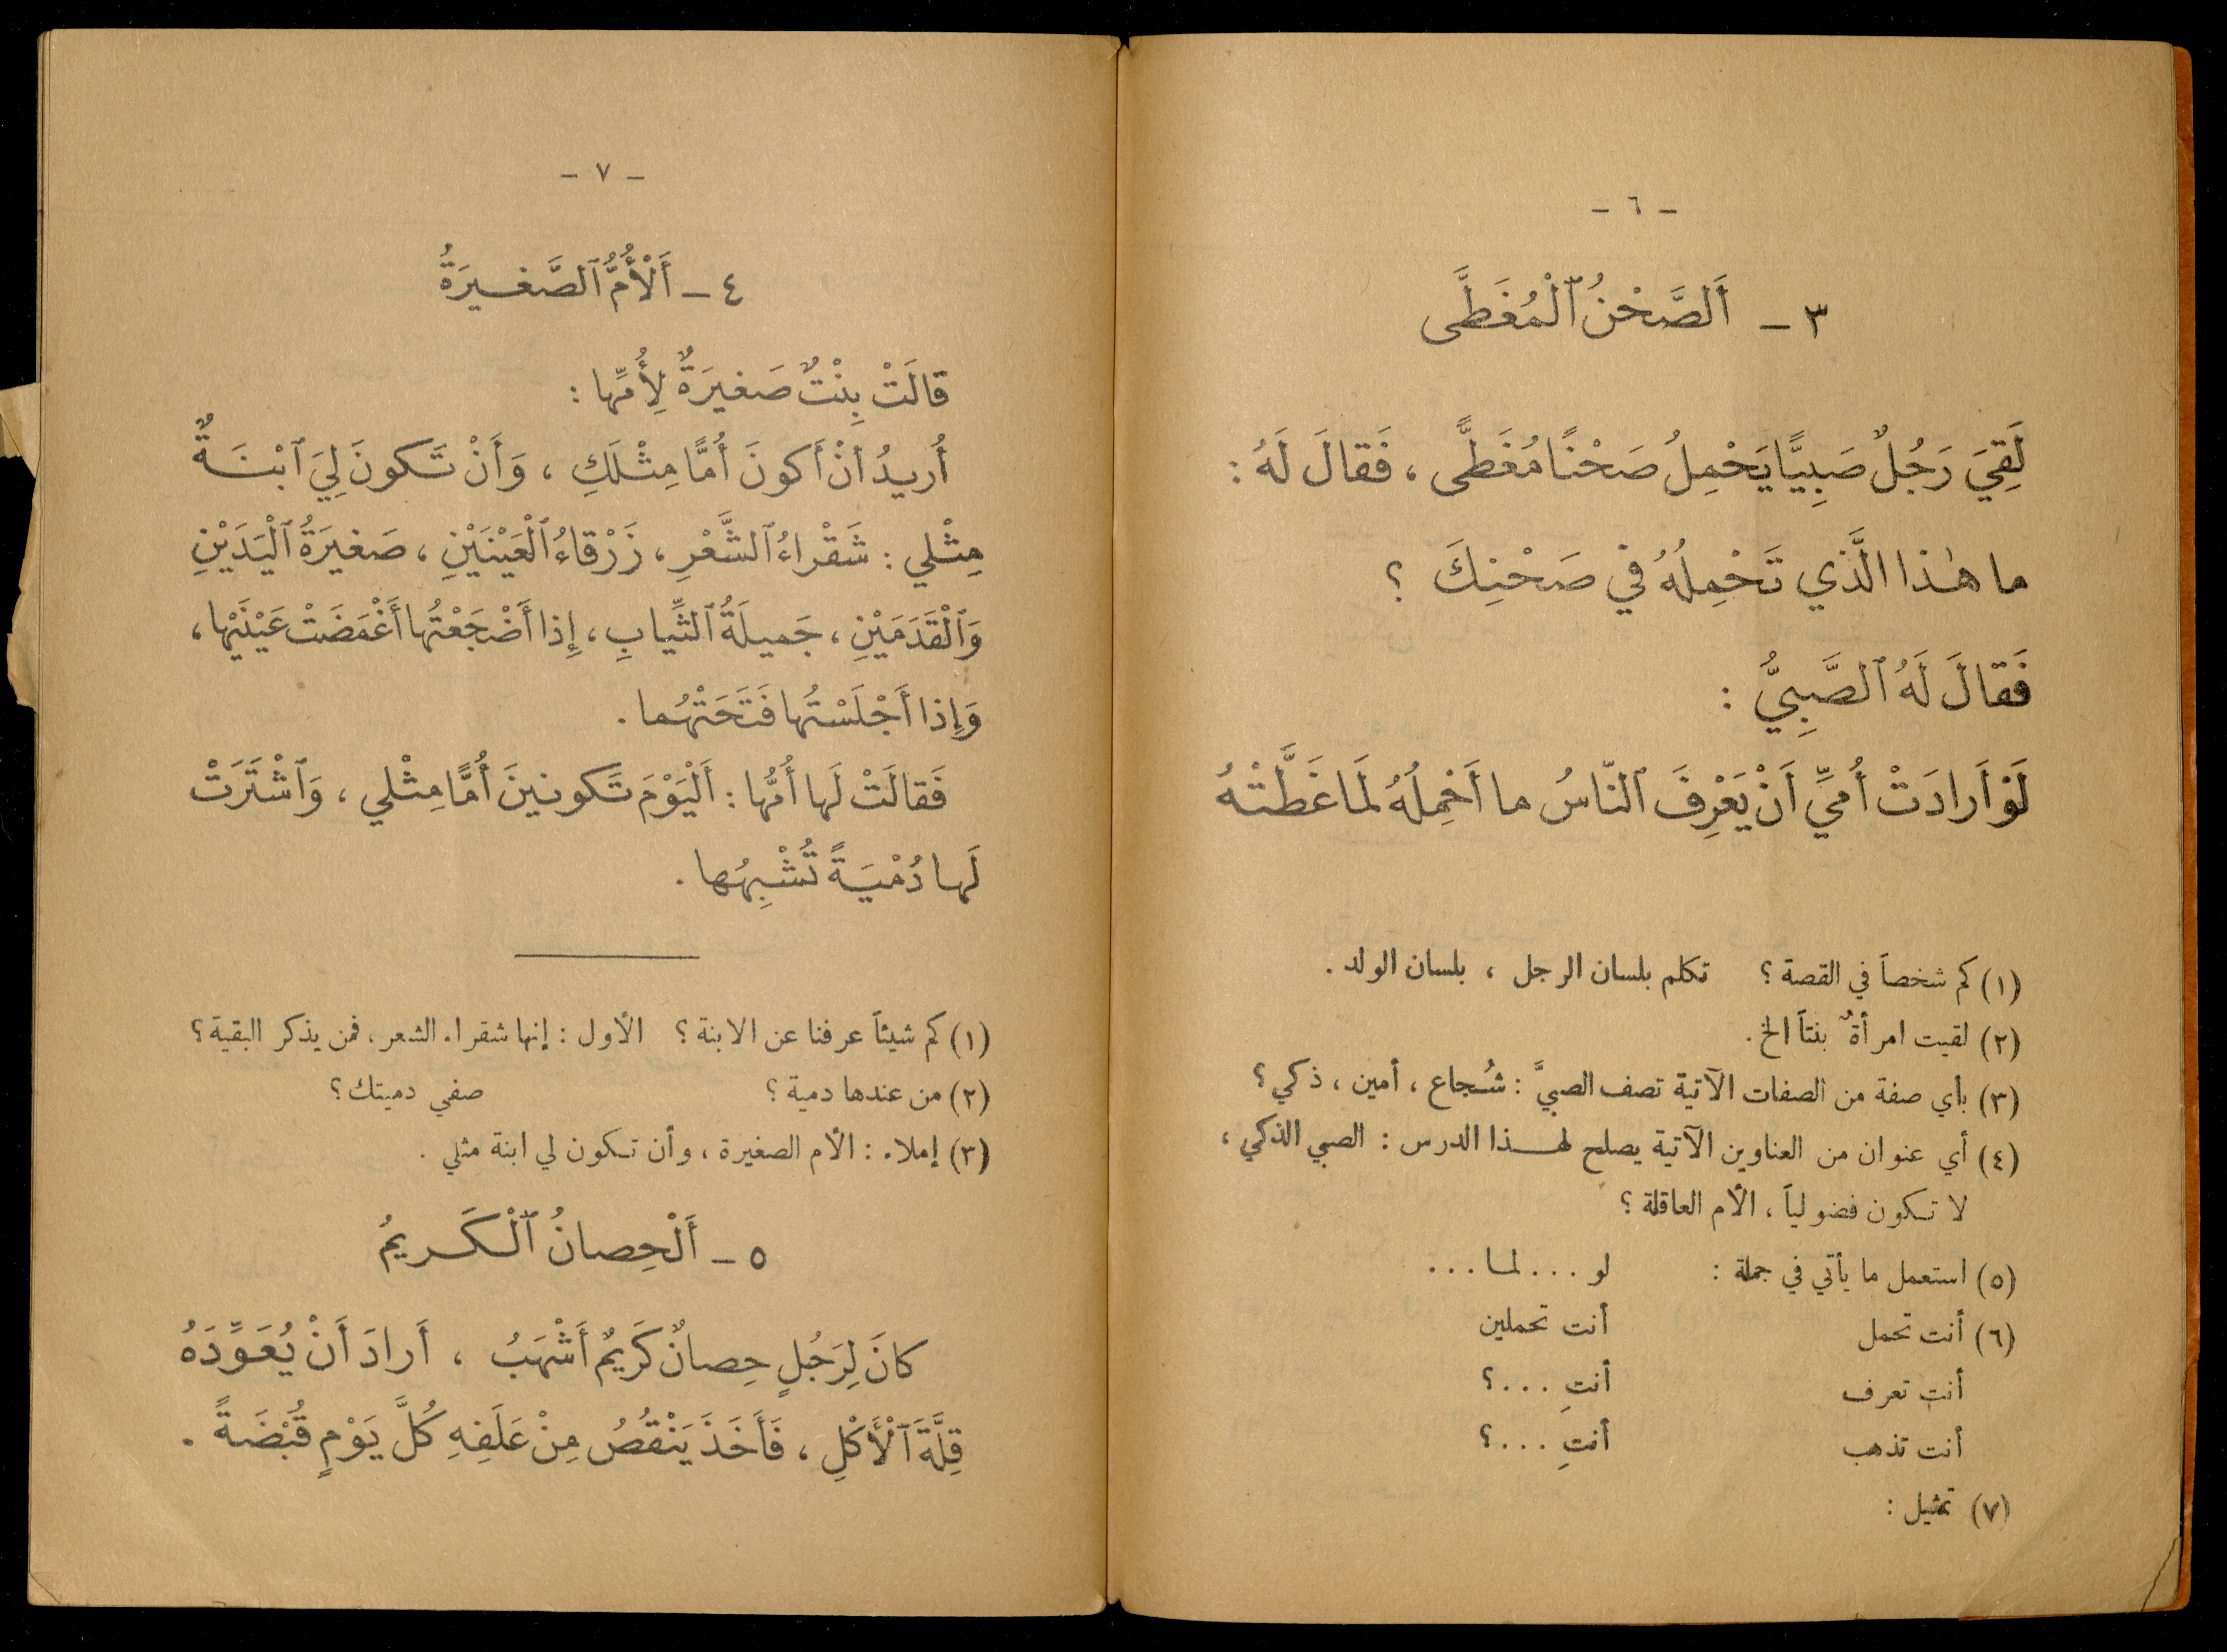 - ٦ -
٣ - أَلصَّحْنُ ٱلْمُغَطَّى
لَقِيَ رَجُلٌ صَبِيًّا يَحْمِلُ صَحْنًا مُغَطًّى ، فَقالَ لَهُ :
ما هٰذا الَّذي تَحْمِلُهُ في صَحْنِكَ ؟
فَقالَ لَهُ ٱلصَّبِيُّ :
لَوْ أَرادَتْ أُمِّيِ أَنْ يَعْرِفَ ٱلنّاسُ ما أَحْمِلُهُ لَمَا غَطَّتْهُ
(١) كم شخصاً في القصة ؟ تكلم بلسان الرجل ، بلسان الولد .
(٢) لقيت امرأةٌ بنتاً الخ .
(٣) بأي صفة من الصفات الآتية تصف الصبيَّ : شُجاع ، أمين ، ذكي ؟
(٤) أي عنوان من العناوين الآتية يصلح لهذا الدرس : الصبي الذكي ،
لا تكون فضولياً ، الأم العاقلة ؟
(٥) استعمل ما يأتي في جملة : لو . . . لما . . .
(٦) أنت تحمل أنت تحملين
أنت تعرف أنتِ . . . ؟
أنت تذهب أنتِ . . . ؟
(٧) تمثيل :
- ٧ -
٤ - أَلْأُمُّ ٱلصَّغيرَةُ
قالَتْ بِنْتٌ صَغيرَةٌ لِأُمِّها :
أُريدُ أنْ أَكونَ أُمًّا مِثْلَكِ ، وَأَنْ تَكونَ لِيَ ٱبْنَةٌ
مِثْلي : شَقْراءُ ٱلشَّعْرِ ، زَرْقاءُ ٱلْعَيْنَيْنِ ، صَغيرَةُ ٱلْيَدَيْنِ
وَٱلْقَدَمَيْنِ ، جَميلَةُ ٱلثِّيابِ ، إِذا أَضْجَعْتُها أَغْمَضَتْ عَيْنَيْها ،
وَإِذا أَجْلَسْتُها فَتَحَتْهُما .
فَقالَتْ لَها أُمُّها : أَلْيَوْمَ تَكونينَ أُمًّا مِثْلي ، وَٱشْتَرَتْ
لَها دُمْيَةً تُشْبِهُها .
(١) كم شيئاً عرفنا عن الابنة ؟ الأول : إنها شقراء الشعر ، فمن يذكر البقية ؟
(٢) من عندها دمية ؟ صفي دميتك ؟
(٣) إملاء : الأم الصغيرة ، وأن تكون لي ابنة مثلي .
٥ - أَلْحِصانُ ٱلْكَريمُ
كانَ لِرَجُلٍ حِصانٌ كَريمٌ أَشْهَبُ ، أَرادَ أَنْ يُعَوِّدَهُ
قِلَّةَ ٱلْأَكْلِ ، فَأَخَذَ يَنْقُصُ مِنْ عَلَفِهِ كُلَّ يَوْمٍ قُبْضَةً .